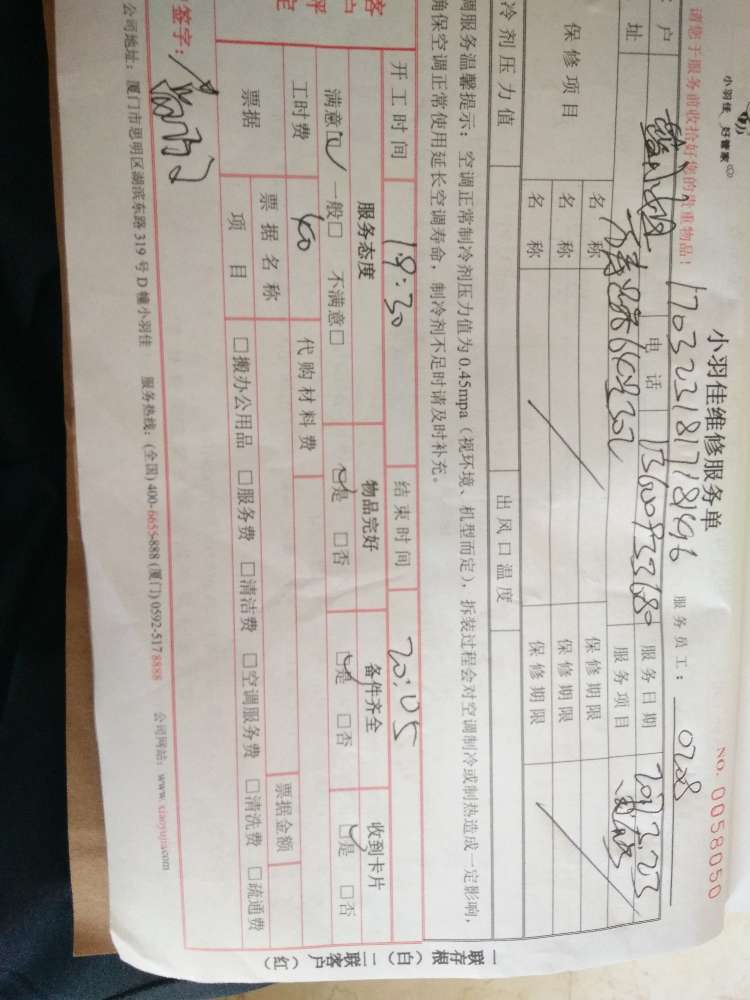 小羽佳 好管家
小羽佳维修服务单
NO. 0058050
请您于服务前收拾好您的贵重物品!
服务员工: 0208
户
电话
服务日期
址
服务项目
保修项目
名称
保修期限
名称
保修期限
名称
保修期限
冷剂压力值
出风口温度
调服务温馨提示: 空调正常制冷剂压力值为 0.45mpa (视环境、机型而定), 拆装过程会对空调制冷或制热造成一定影响,
确保空调正常使用延长空调寿命, 制冷剂不足时请及时补充。
开工时间 19:30 结束时间 20:05
客户评定
服务态度 物品完好 备件齐全 收到卡片
满意☑ 一般□ 不满意□ ☑是 □否 ☑是 □否 ☑是 □否
工时费
代购材料费
票据
票据名称
票据金额
项目
□搬办公用品 □服务费 □清洁费 □空调服务费 □清洗费 □疏通费
签字:
公司地址: 厦门市思明区湖滨东路 319 号 D 幢小羽佳 服务热线: (全国) 400-6655-888 (厦门) 0592-5178888 公司网站: www.xiaoyujia.com
一联存根(白) 二联客户(红)